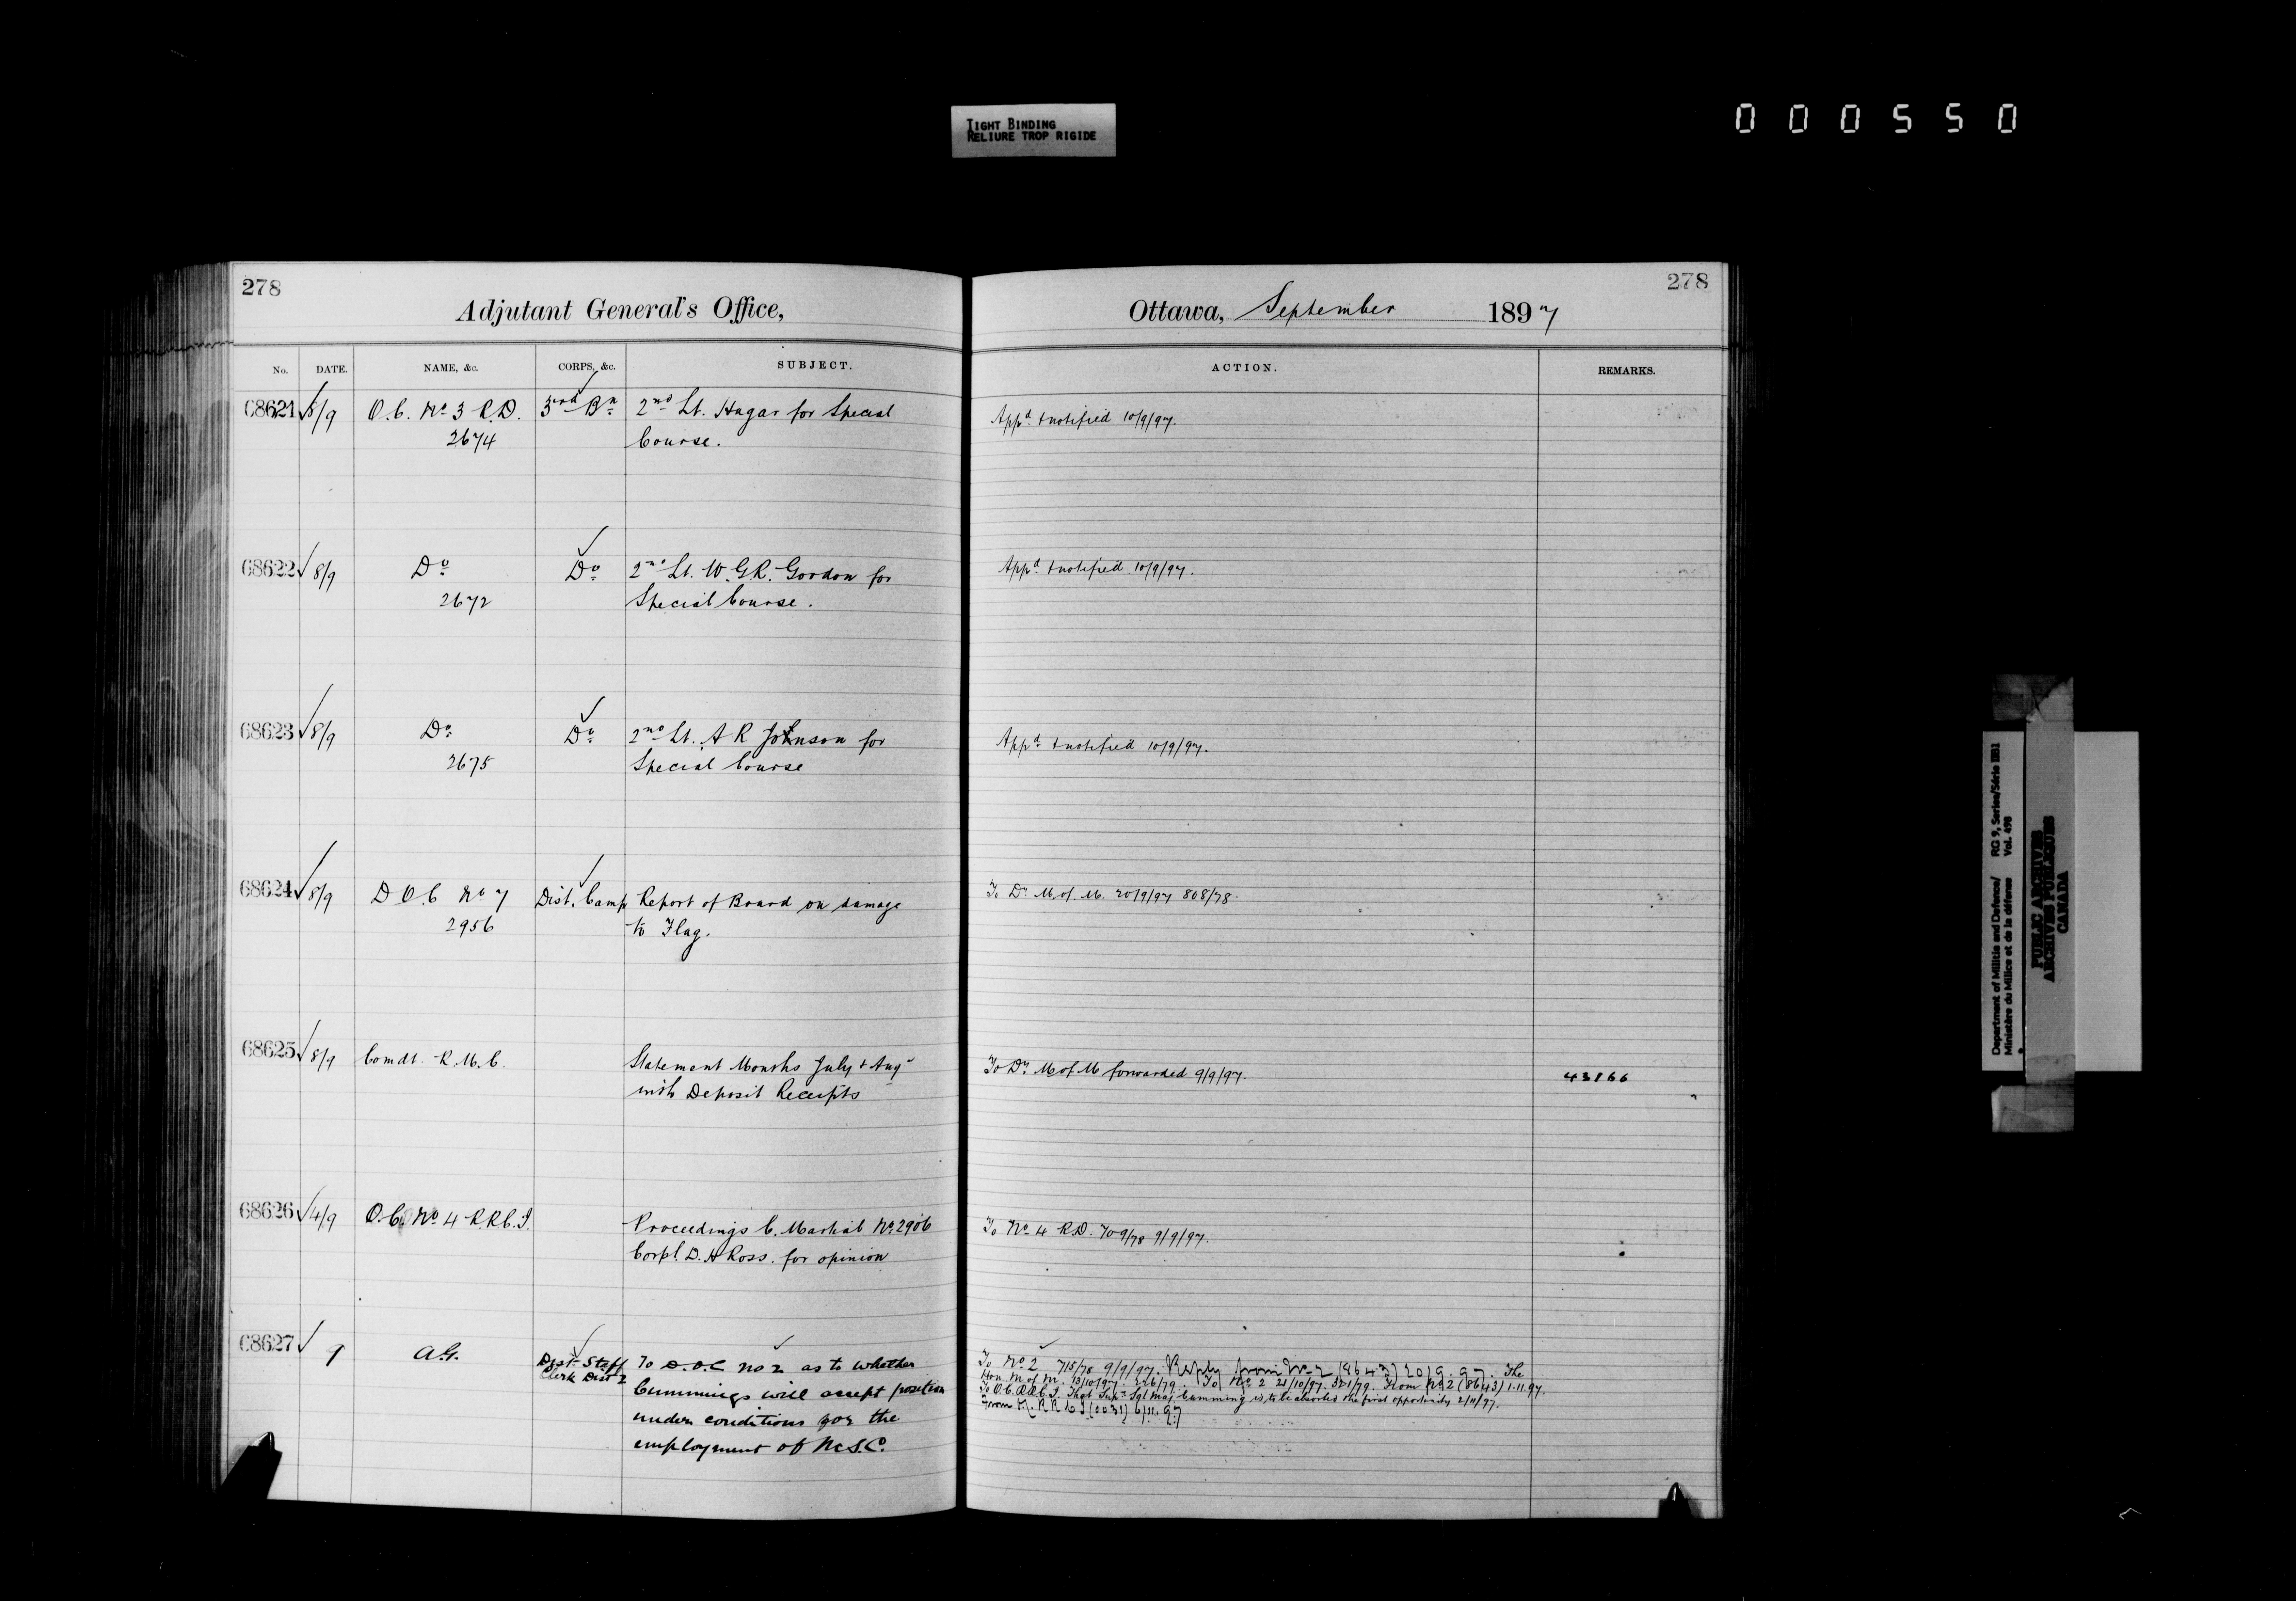 TIGHT BINDING
RELIURE TROP RIGIDE
000550
278
Adjutant General's Office,
No. DATE. NAME, &c. CORPS, &c. SUBJECT.
68621 8/9 O.C. No 3 R.D. 3rd Bn 2nd Lt. Hagar for Special
2674 Course.
68622 8/9 Do Do 2nd Lt. W.G.R. Gordon for
2672 Special Course.
68623 8/9 Do Do 2nd Lt. A R Johnson for
2675 Special Course
68624 8/9 D O.C No 7 Dist. Camp Report of Board on damage
2956 to Flag.
68625 8/9 Comdt. R.M.C. Statement Months July & Aug
with Deposit Receipts
68626 4/9 O.C. No 4 R.R.C.I. Proceedings C. Martial No. 2906
Corpl. D. H Ross. for opinion
68627 9 A.G. Dist Staff To D.O.C No 2 as to whether
Clerk Dist 2
Cummings will accept position
under conditions for the
employment of N.S.C.
278
Ottawa, September 1897
ACTION. REMARKS.
Appd & notified 10/9/97.
Appd & notified 10/9/97.
Appd & notified 10/9/97.
To Dr M. of M. 20/9/97 808/78.
To Dr M of M forwarded 9/9/97. 43166
To No 4 R.D. 709/78 9/9/97.
To No 2 715/78 9/9/97. Reply from No 2 (8643) 20.9.97. The
Hon. M of M. 13/10/97. 226/79. To No 2 21/10/97. 321/79. From No 2 (8643) 1.11.97.
To O.C. R.R.C.I. That Supy Sgt Maj. Cumming is to be absorbed the first opportunity 2/11/97.
From R.R.C.I (0031) 6/11.97
Department of Militia and Defence/ RG 9, Series/Série IIB1
Ministère du Milice et de la défense Vol. 498
PUBLIC ARCHIVES
ARCHIVES PUBLIQUES
CANADA